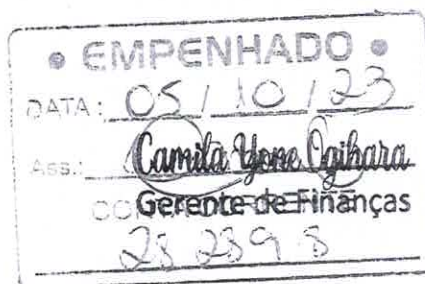 • EMPENHADO •
DATA: 05/10/23
Ass.: Camila Yone Ogihara
Gerente de Finanças
28 289 8